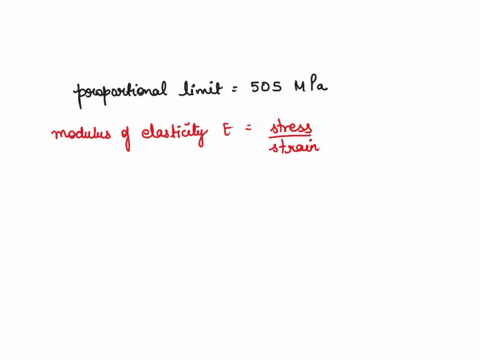 proportional limit = 505 MPa
modulus of elasticity E = stress
strain